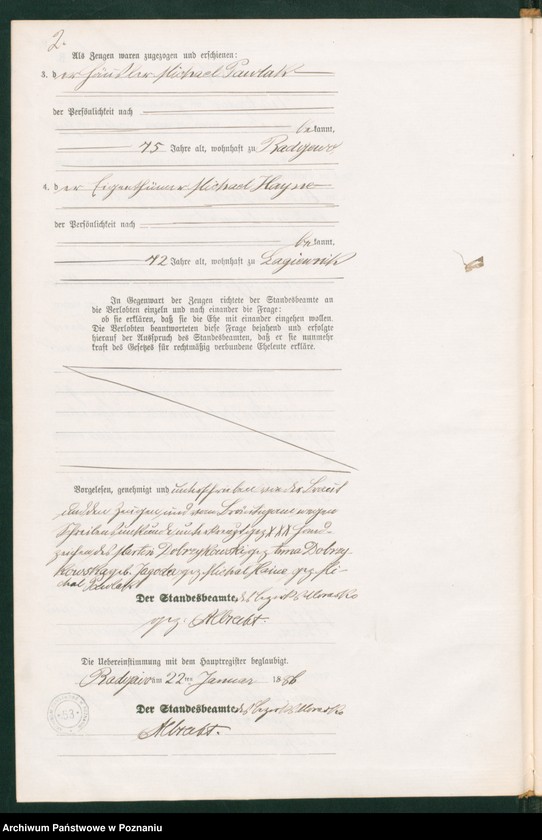 2.
Als Zeugen waren zugezogen und erschienen:
3. der Häusler Michael Pawlak
der Persönlichkeit nach
bekannt,
45 Jahre alt, wohnhaft zu Radojewo
4. der Eigenthümer Michael Hayne
der Persönlichkeit nach
bekannt,
42 Jahre alt, wohnhaft zu Lagiewnik
In Gegenwart der Zeugen richtete der Standesbeamte an
die Verlobten einzeln und nach einander die Frage:
ob sie erklären, daß sie die Ehe mit einander eingehen wollen.
Die Verlobten beantworteten diese Frage bejahend und erfolgte
hierauf der Ausspruch des Standesbeamten, daß er sie nunmehr
kraft des Gesetzes für rechtmäßig verbundene Eheleute erkläre.
Vorgelesen, genehmigt und unterschrieben von der Braut
und den Zeugen und vom Bräutigam wegen
Schreibensunkunde unterkreuzt gez. XXX Hand-
zeichen des Martin Dobrzykowski gez. Anna Dobrzy-
kowska geb. Jagoda gez. Michael Haine gez. Mi-
chael Pawlak
Der Standesbeamte des Bezirks Morasko
gez. Albracht.
Die Uebereinstimmung mit dem Hauptregister beglaubigt.
am 22ten Januar 1886
Der Standesbeamte des Bezirks Morasko
Albracht.
53
Archiwum Państwowe w Poznaniu